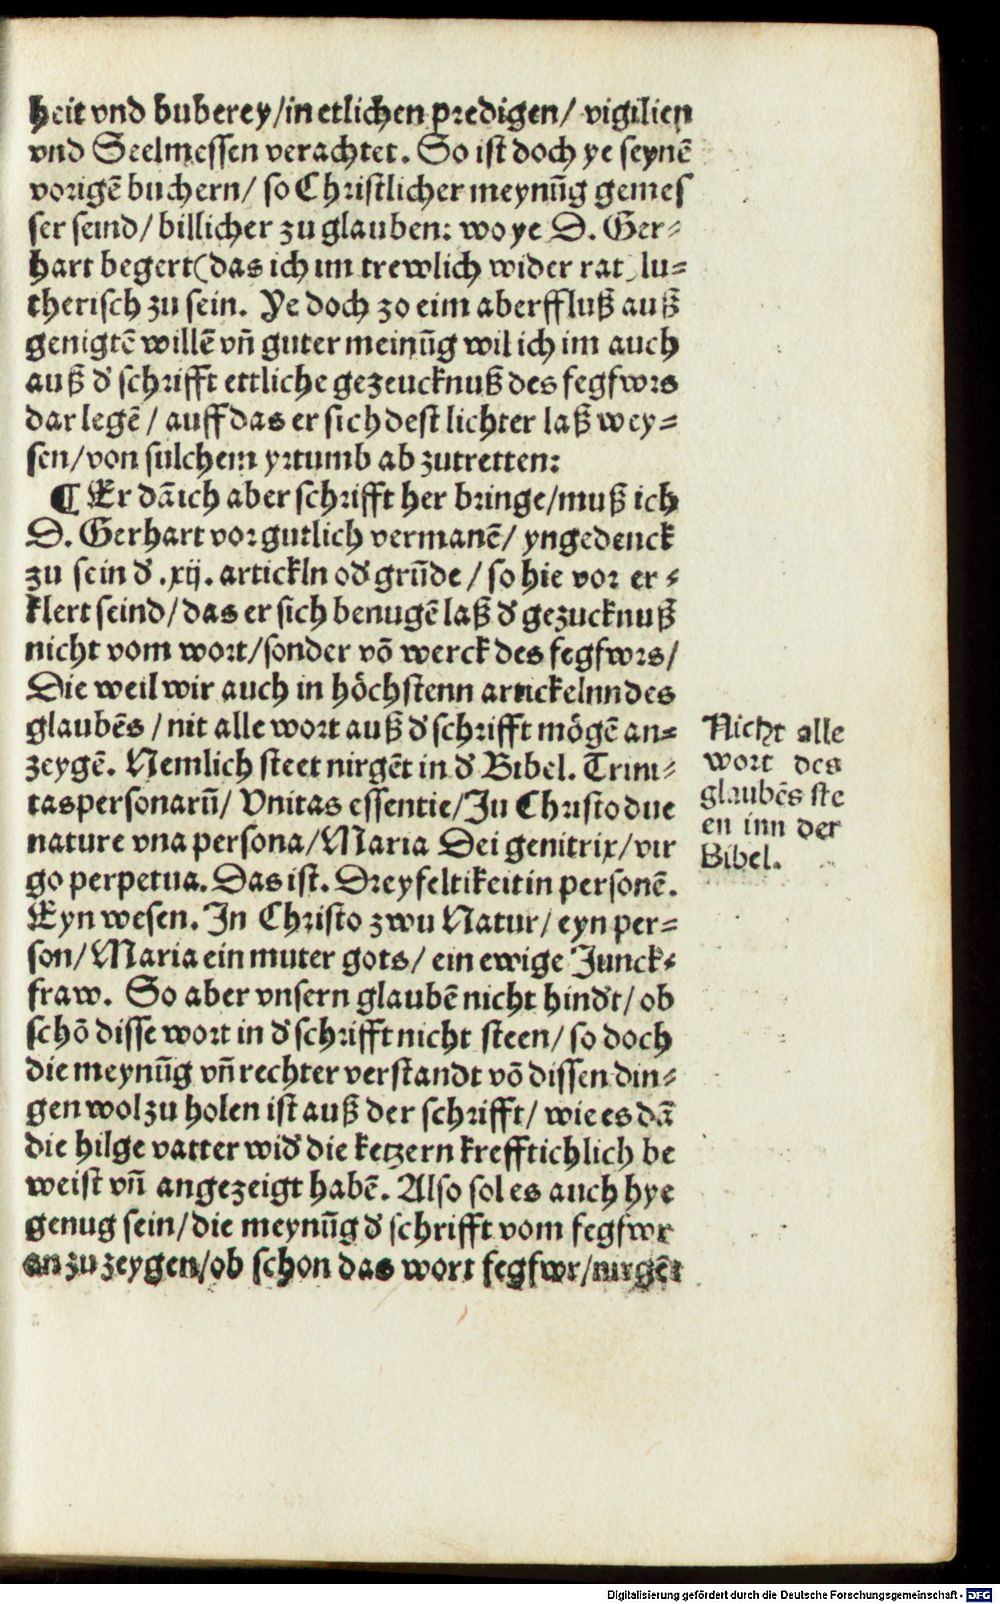 heit vnd buberey/in etlichen predigen/ vigilien
vnd Seelmessen verachtet. So ist doch ye seynē
vorigē buchern/ so Christlicher meynūg gemes
ser seind/ billicher zu glauben: wo ye D. Ger-
hart begert(das ich im trewlich wider rat)lu-
therisch zu sein. Ye doch zo eim aberffluß auß
genigtē willē vñ guter meinūg wil ich im auch
auß d' schrifft ettliche gezeucknuß des fegfwrs
dar legē / auff das er sich dest lichter laß wey-
sen/von sulchem yrtumb ab zutretten:
¶ Er dā ich aber schrifft her bringe/muß ich
D. Gerhart vor gutlich vermanē/ yngedenck
zu sein d' .xij. artickln od' grūde / so hie vor er-
klert seind/das er sich benugē laß d' gezucknuß
nicht vom wort/sonder vō werck des fegfwrs/
Die weil wir auch in höchstenn artickelnn des
glaubēs / nit alle wort auß d' schrifft mögē an-
zeygē. Nemlich steet nirgēt in d' Bibel. Trini-
tas personarū/ Vnitas essentie/In Christo due
nature vna persona/Maria Dei genitrix/vir
go perpetua. Das ist. Dreyfeltikeit in personē.
Eyn wesen. In Christo zwu Natur/ eyn per-
son/Maria ein muter gots/ ein ewige Junck-
fraw. So aber vnsern glaubē nicht hind't/ ob
schō disse wort in d' schrifft nicht steen/ so doch
die meynūg vñ rechter verstandt vō dissen din-
gen wol zu holen ist auß der schrifft/ wie es dā
die hilge vatter wid' die ketzern krefftichlich be
weist vñ angezeigt habē. Also sol es auch hye
genug sein/die meynūg d' schrifft vom fegfwr
an zu zeygen/ob schon das wort fegfwr/nirgēt
Nicht alle
wort des
glaubēs ste
en inn der
Bibel.
Digitalisierung gefördert durch die Deutsche Forschungsgemeinschaft - DFG